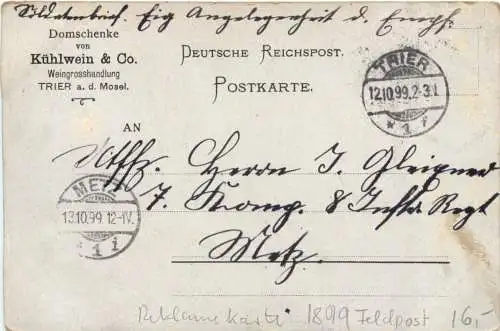 Soldatenbrief. Eig Angelegenheit d. Empf.
Domschenke
von
Kühlwein & Co.
Weingrosshandlung
TRIER a. d. Mosel.
DEUTSCHE REICHSPOST.
POSTKARTE.
TRIER
12.10.99.2-3.N.
* 1 f
AN
Utffz. Herrn J.
7. Komp. 8 Inftr Regt
Metz.
METZ
13.10.99 12-1V.
* 1 i
Reklame Karte 1899 Feldpost 16,-